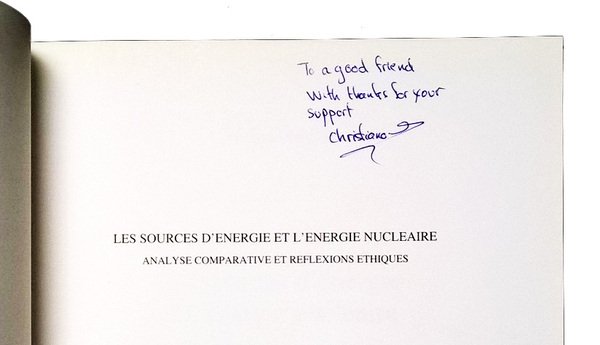 To a good friend
With thanks for your
support
Christiano
LES SOURCES D'ENERGIE ET L'ENERGIE NUCLEAIRE
ANALYSE COMPARATIVE ET REFLEXIONS ETHIQUES